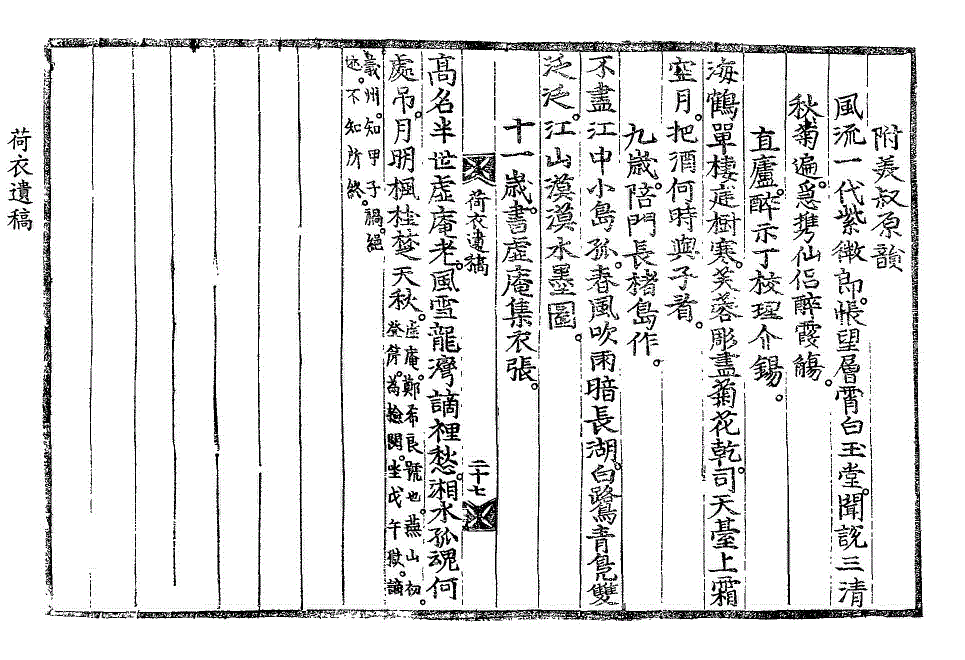 附美叔原韻
風流一代紫微郎。悵望層霄白玉堂。聞說三淸
秋菊遍。忍携仙侶醉霞觴。
直廬。醉示丁校理介錫。
海鶴單棲庭樹寒。芙蓉彫盡菊花乾。司天臺上霜
空月。把酒何時與子看。
九歲。陪門長楮島作。
不盡江中小島孤。春風吹雨暗長湖。白鷺靑鳧雙
泛泛。江山漠漠水墨圖。
十一歲。書虛庵集衣張。
荷衣遺稿
二十七
高名半世虛庵老。風雪龍灣謫裡愁。湘水孤魂何
處吊。月明楓桂楚天秋。虛庵。鄭希良號也。燕山初。
登第。爲檢閱。坐戊午獄。謫
義州。知甲子禍。絕
迹。不知所終。
荷衣遺稿